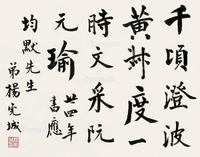 千頃澄波
黄叔度一
時文采阮
元瑜
廿四年
書應
均默先生
弟楊
城